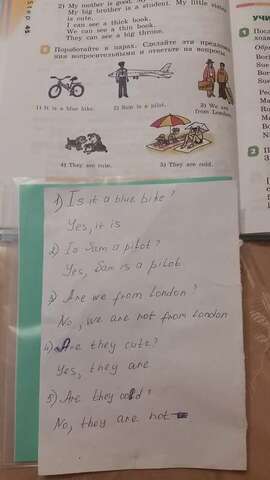 Step 4
2) My mother is good. So
My big brother is a student. My little
is cute.
I can see a thick book.
We can see a thin book.
They can see a big throne.
Поработайте в парах. Сделайте эти предложе
ния вопросительными и ответьте на вопросы.
1) It is a blue bike.
2) Sam is a pilot.
3) We are
from London.
4) They are cute.
5) They are cold.
УЧИ
1
2
1) Is it a blue bike?
Yes, it is
2) Is Sam a pilot?
Yes, Sam is a pilot
3) Are we from London?
No, we are not from London
4) Are they cute?
Yes, they are
5) Are they cold?
No, they are not